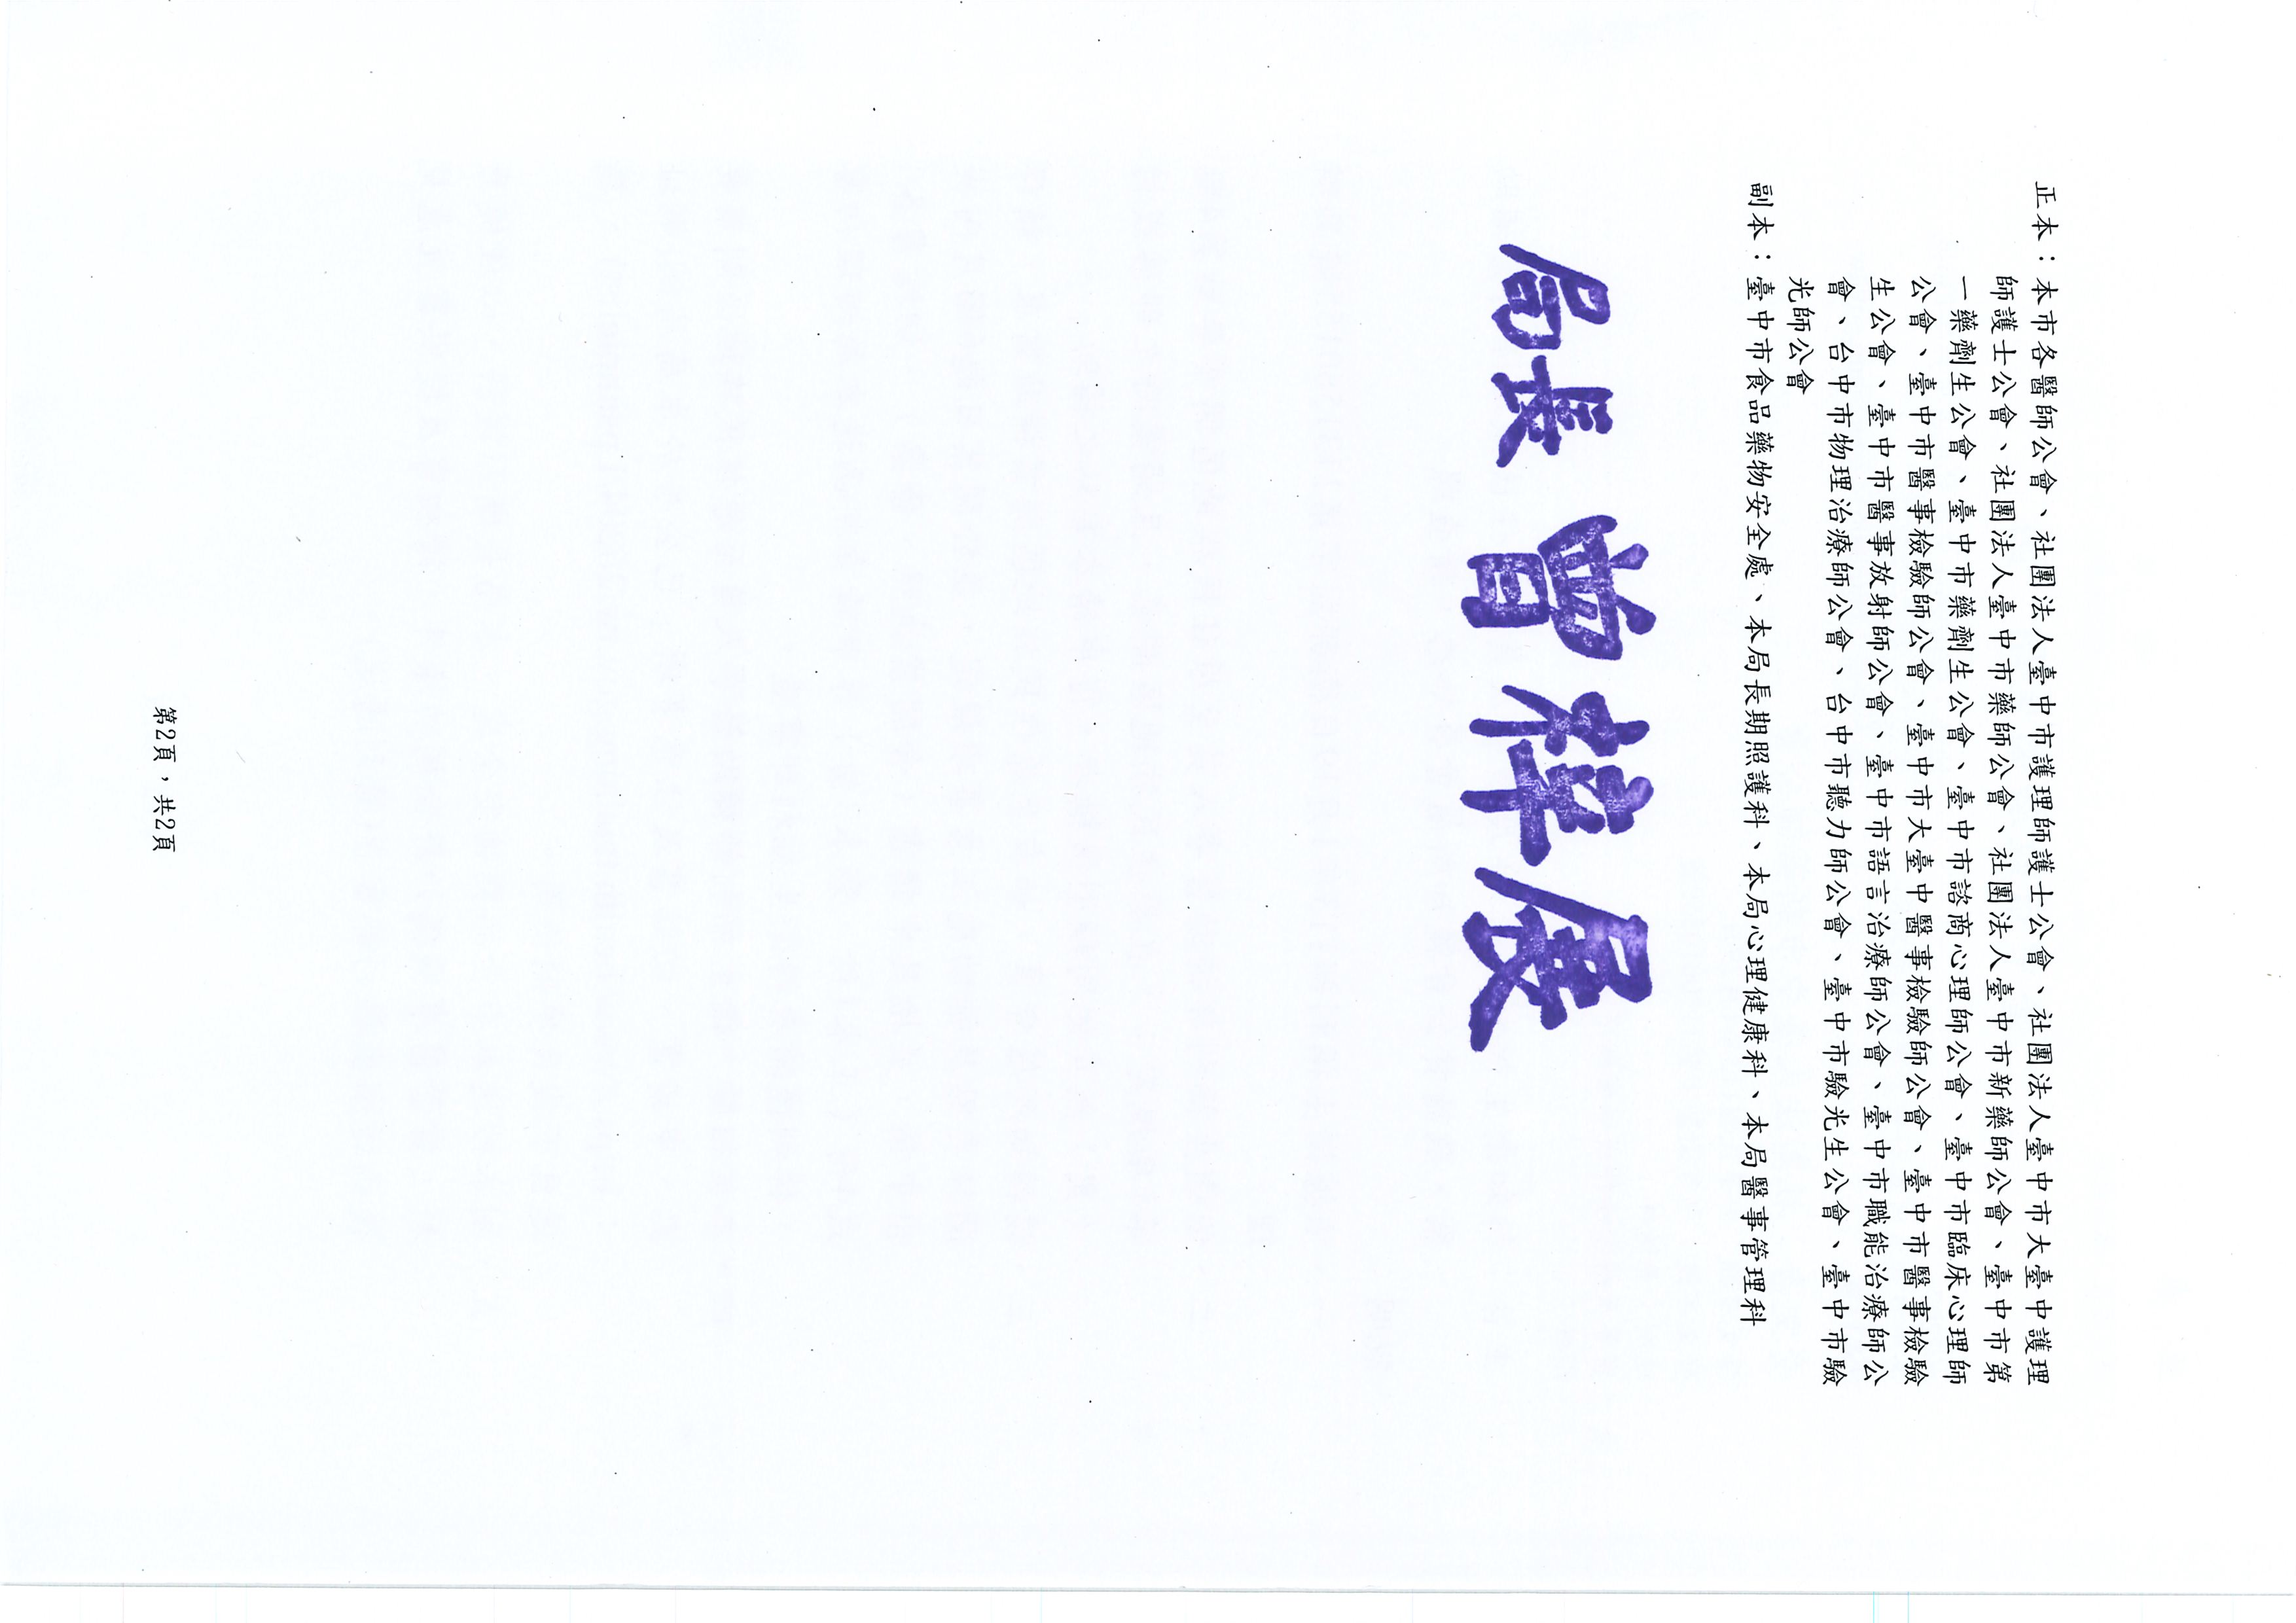 正本：本市各醫師公會、社團法人臺中市護理師護士公會、社團法人臺中市大臺中護理
師護士公會、社團法人臺中市藥師公會、社團法人臺中市新藥師公會、臺中市第
一藥劑生公會、臺中市藥劑生公會、臺中市諮商心理師公會、臺中市臨床心理師
公會、臺中市醫事檢驗師公會、臺中市大臺中醫事檢驗師公會、臺中市醫事檢驗
生公會、臺中市醫事放射師公會、臺中市語言治療師公會、臺中市職能治療師公
會、台中市物理治療師公會、台中市聽力師公會、臺中市驗光生公會、臺中市驗
光師公會
副本：臺中市食品藥物安全處、本局長期照護科、本局心理健康科、本局醫事管理科
局長 曾梓展
第2頁，共2頁